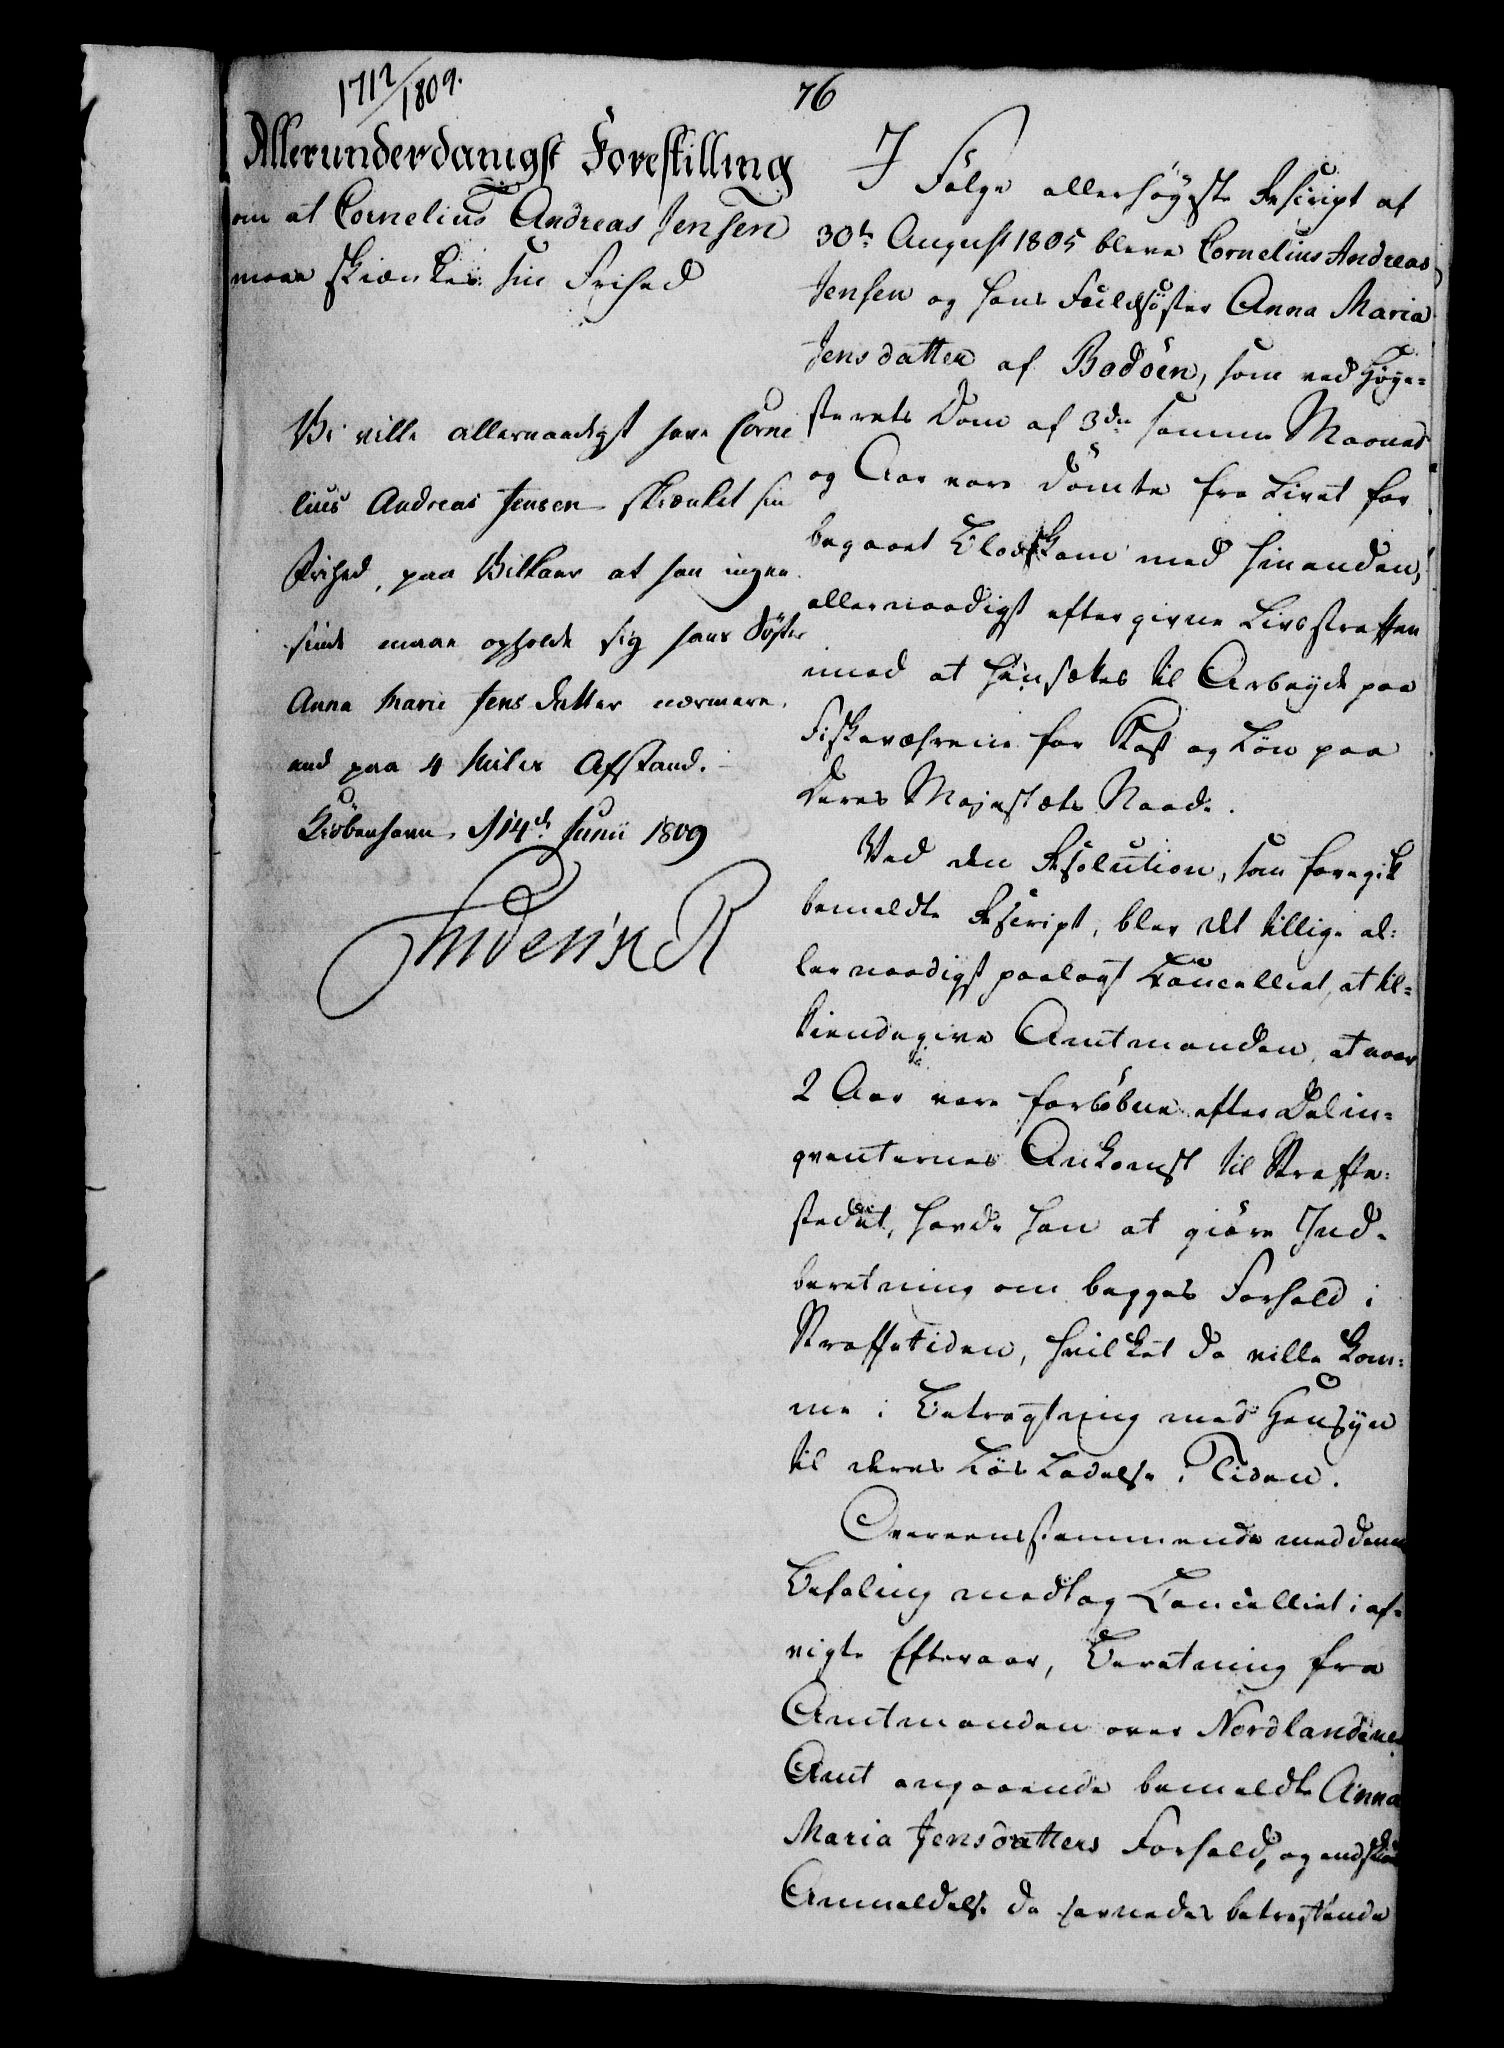 1712/1809.
76
Allerunderdanigst Forestilling
om at Cornelius Andreas Jensen
maae skiænkes sin Frihed
Vi ville allernaadigst have Corne
lius Andreas Jensen skiænket sin
Frihed, paa Vilkaar at han ingen
sinde maae opholde sig hans Söster
Anna Marie Jens datter nærmere,
end paa 4 Miiles Afstand.
Kiöbenhavn, d 14de Junii 1809
Frideric R
I Fölge allerhöyeste Rescript af
30te August 1805 bleve Cornelius Andreas
Jensen og hans Fuldsöster Anna Maria
Jensdatter af Bodöen, som ved Höye-
sterets Dom af 3die samme Maaned
og Aar vare dömte fra Livet for
begaaet Blodskam med hinanden,
allernaadigst eftergivne Livsstraffen
imod at hensættes til Arbeyde paa
Fiskeværene for Kost og Lön paa
Deres Majestæts Naade.
Ved den Resolution, som foregik
bemeldte Rescript, blev det tillige al-
lernaadigst paalagt Cancelliet, at til-
kiendegive Amtmanden, at naar
2 Aar vare forlöbne efter Delin-
qventernes Ankomst til Straffe-
stedet, havde han at giöre Ind-
beretning om begges Forhold i
Straffetiden, hvilket da ville kom-
me i Betragtning med Hensyn
til deres Lös Ladelse i Tiden.
Overeensstemmende med denne
Befaling modtog Cancelliet i af-
vigte Efteraar, Beretning fra
Amtmanden over Nordlandenes
Amt angaaende bemeldte Anna
Maria Jensdatters Forhold, og
Anmeldelse da havdes betræffende